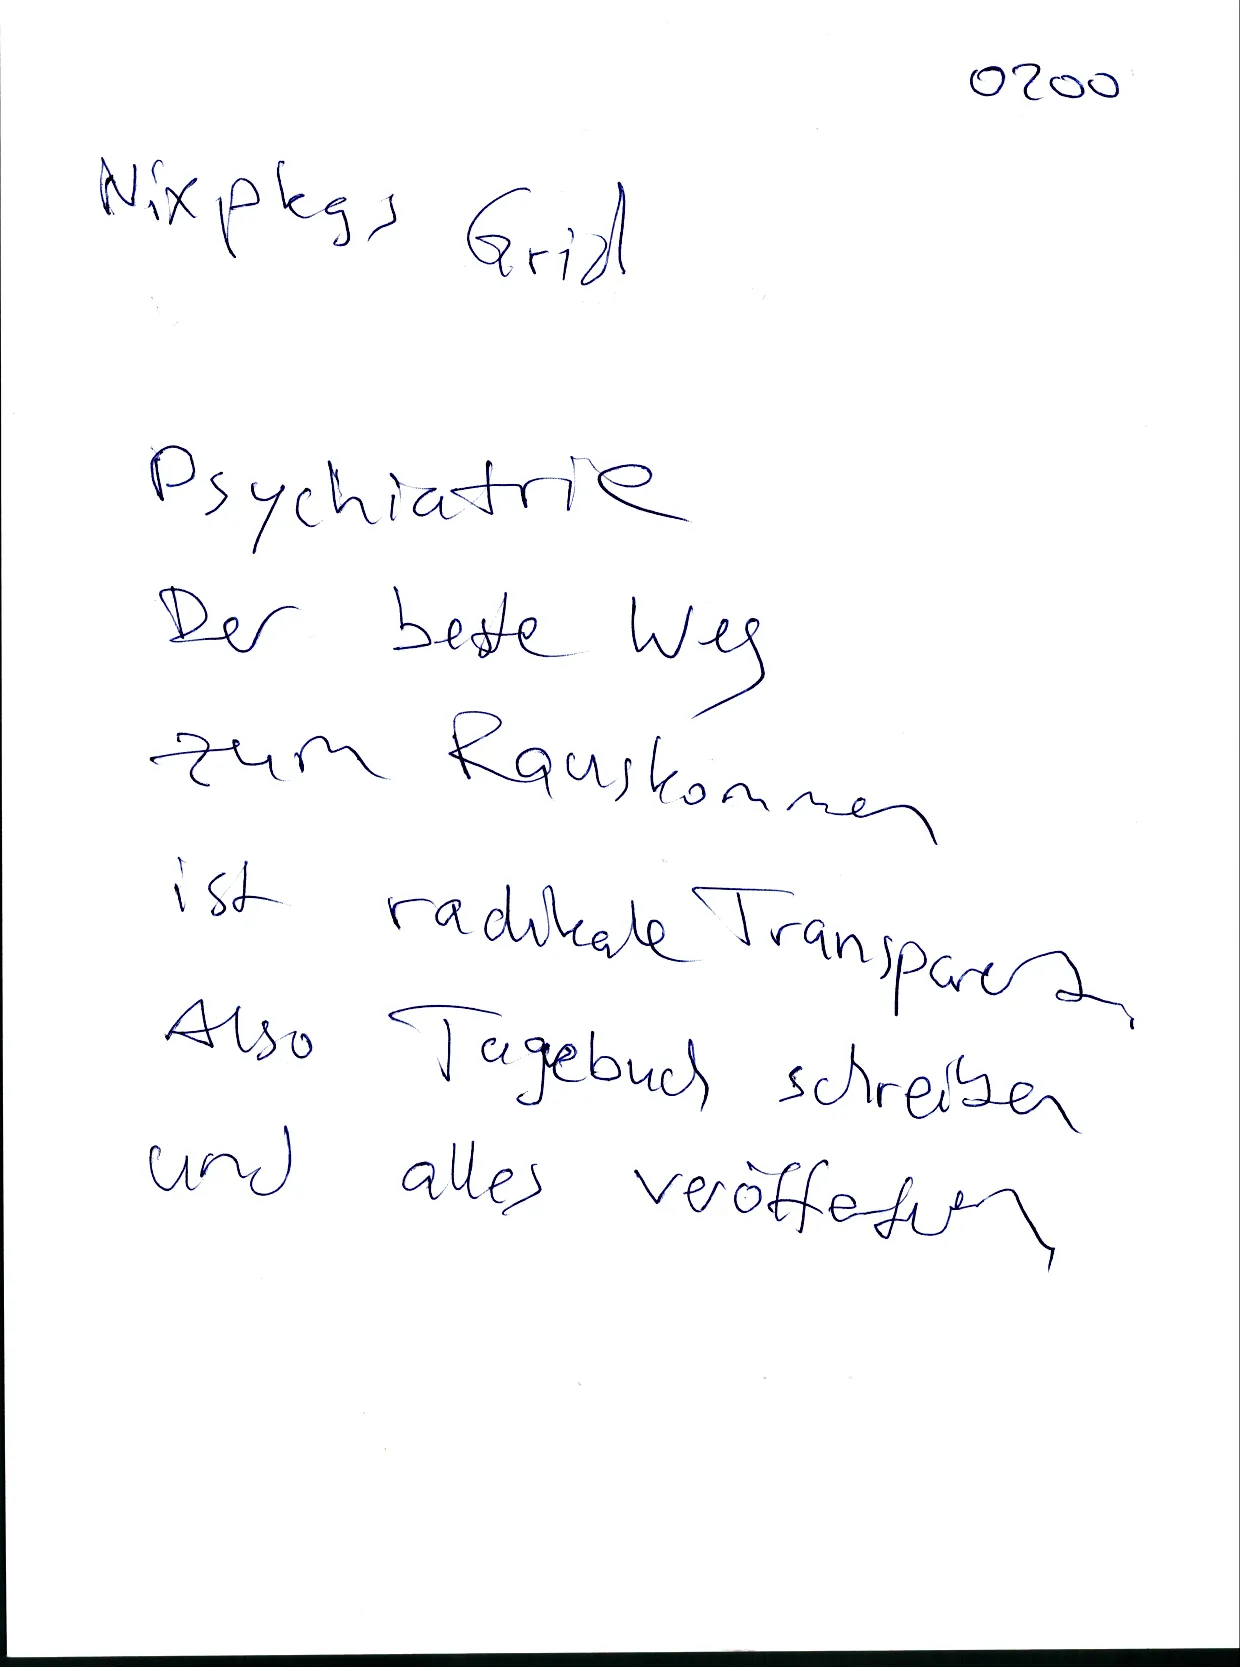 0200
Nixpkgs Grid
Psychiatrie
Der beste Weg
zum Rauskommen
ist radikale Transparenz
Also Tagebuch schreiben
und alles veröffentlichen